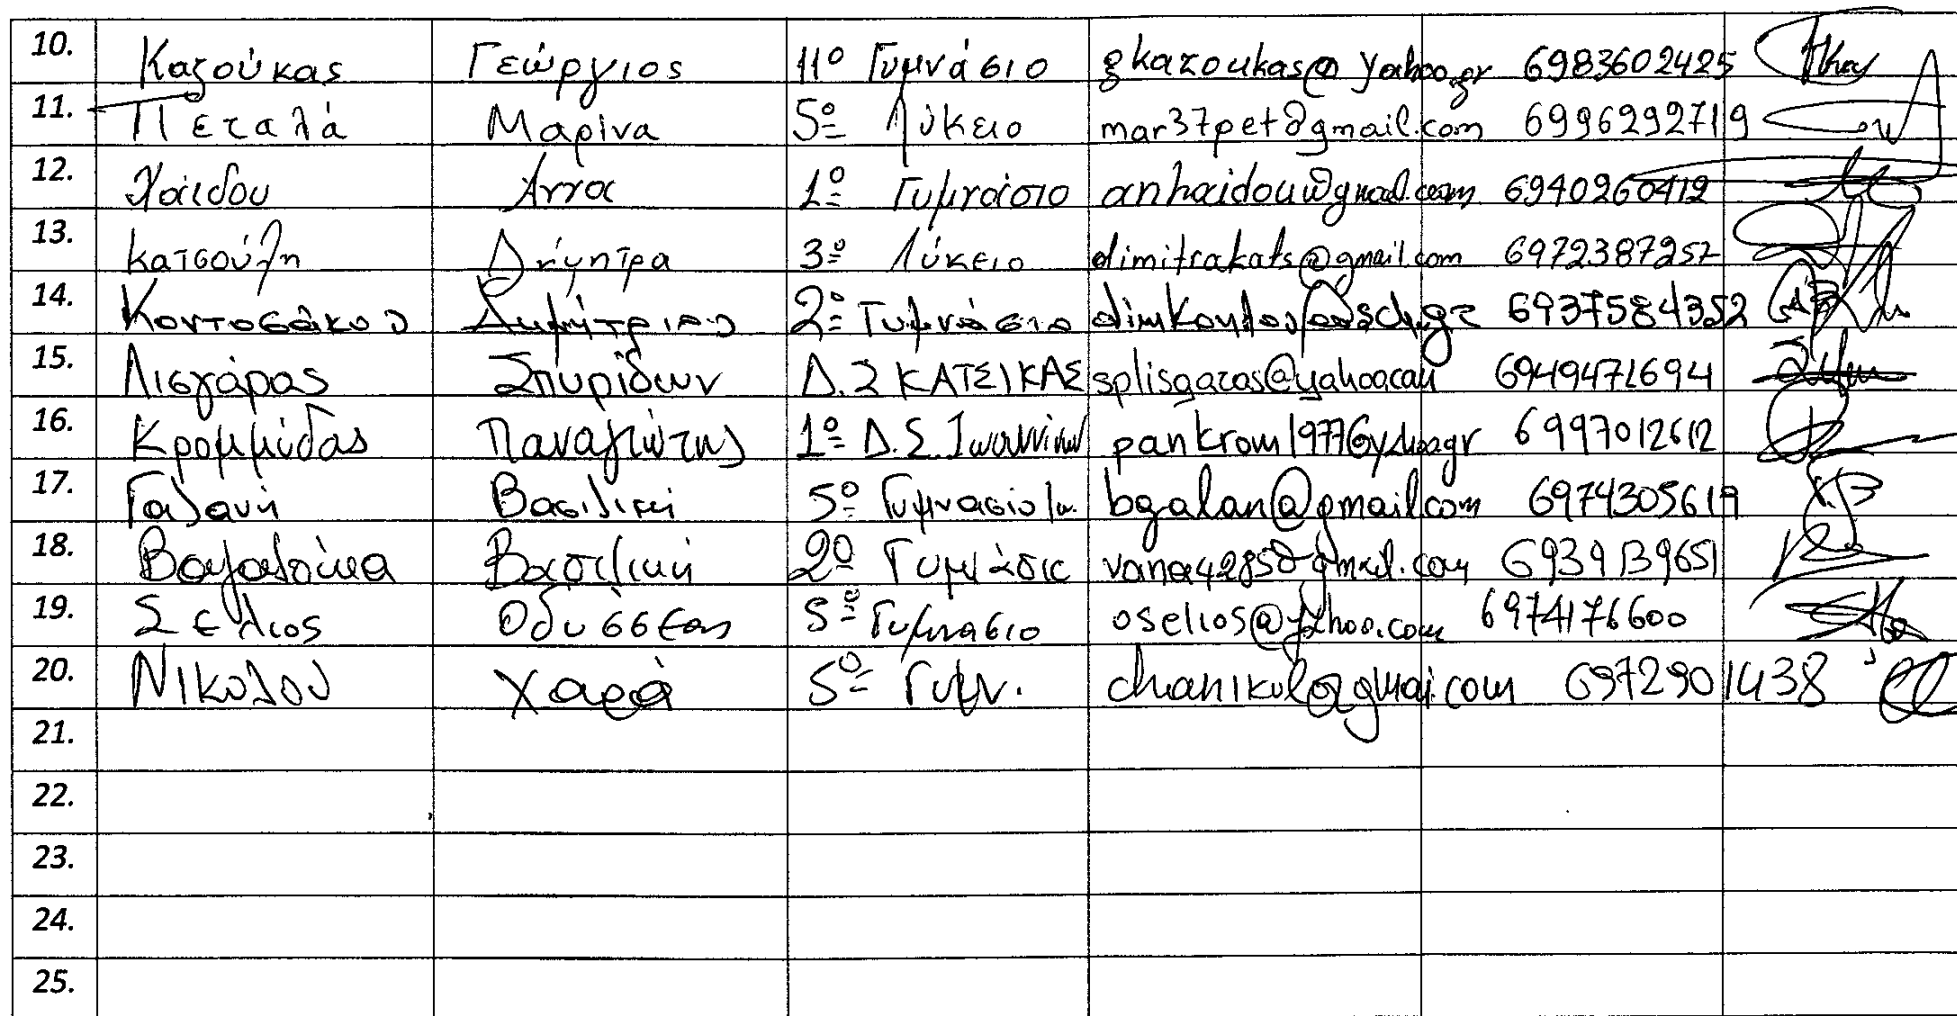 10. Καζούκας Γεώργιος 11º Γυμνάσιο gkazoukas@yahoo.gr 6983602425
11. Πεταλά Μαρίνα 5º Λύκειο mar37pet@gmail.com 6996292719
12. Χάιδου Άννα 1º Γυμνάσιο anhaidou@gmail.com 6940260412
13. Κατσούλη Δήμητρα 3º Λύκειο dimitrakats@gmail.com 6972387257
14. Δημήτριος 2º Γυμνάσιο 6937584352
15. Λισγάρας Σπυρίδων Δ.Σ ΚΑΤΣΙΚΑΣ splisgaras@yahoo.com 6949471694
16. Κρομμύδας Παναγιώτης 1º Δ.Σ. Ιωαννίνων 6997012612
17. Γαλανή Βασιλική 5º Γυμνασιο Ιω. bgalan@gmail.com 6974305619
18. Βασιλική 2º Γυμνάσιο vana4285@gmail.com 6939139651
19. Σέλιος Οδυσσέας 5º Γυμνασιο oselios@yahoo.com 6974176600
20. Νικολού Χαρά 5º Γυμν. 6972901438
21.
22.
23.
24.
25.